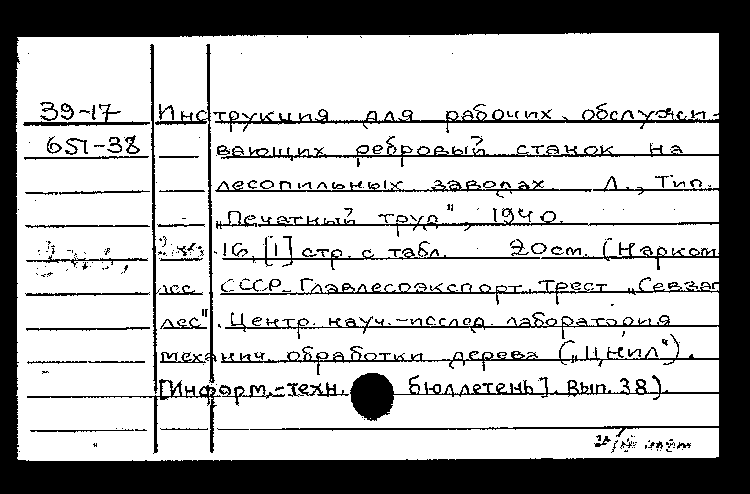 39-17 Инструкция для рабочих, обслужи-
651-38 вающих ребровый станок на
лесопильных заводах. Л., Тип.
„Печатный труд", 1940.
16, [1] стр. с табл. 20см. (Нарком
лес СССР. Главлесоэкспорт. Трест „Севзап
лес". Центр. науч.-исслед. лаборатория
механич. обработки дерева („ЦНИЛ").
[Информ.-техн. бюллетень]. Вып. 38).